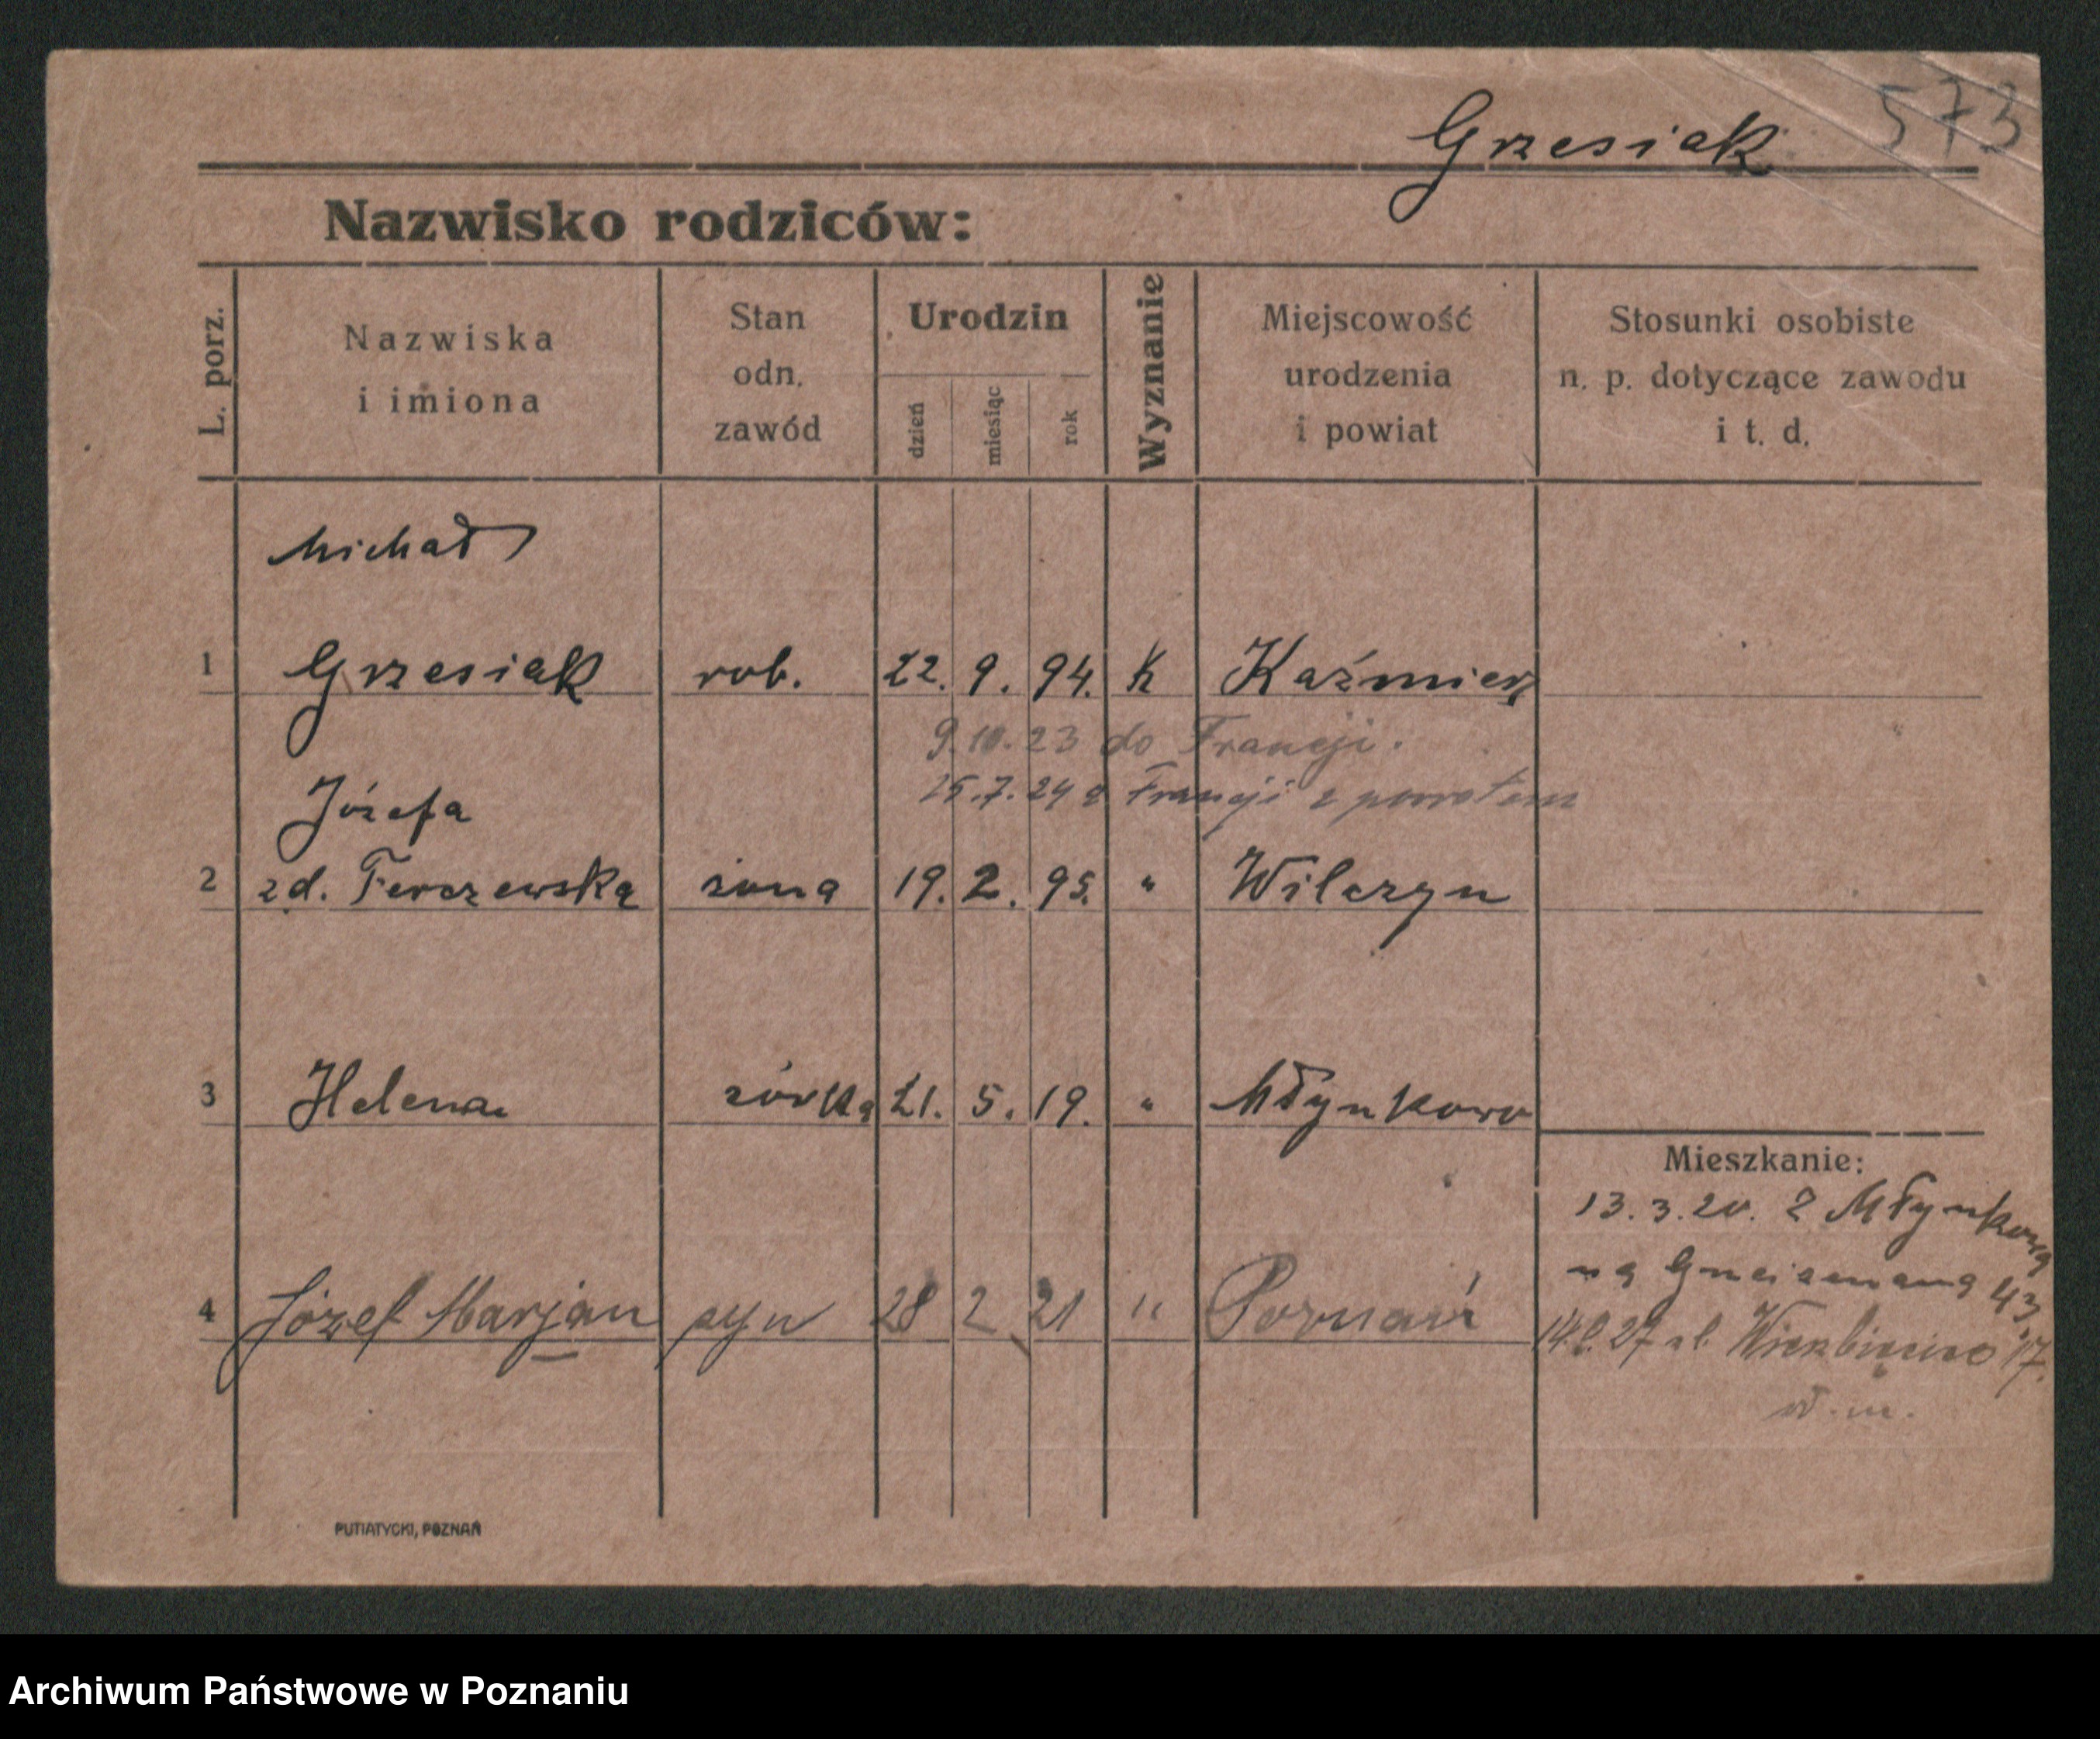 Grzesiak 573
Nazwisko rodziców:
L. porz.
Nazwiska
i imiona
Stan
odn.
zawód
Urodzin
dzień
miesiąc
rok
Wyznanie
Miejscowość
urodzenia
i powiat
Stosunki osobiste
n. p. dotyczące zawodu
i t. d.
Michał
1 Grzesiak rob. 22. 9. 94. K Kaźmierz
9.10.23 do Francji.
25.7.24 z Francji z powrotem
Józefa
2 zd. Ferczewska żona 19. 2. 95. " Wilczyn
3 Helena córka 21. 5. 19. " Młynkowo
Mieszkanie:
13.3.20. z Młynkowa
na Gneisenaua 43
4 Józef Marjan syn 28 2 21 " Poznań
27 ul. Wierzbięcice 17.
w.m.
PUTIATYCKI, POZNAŃ
Archiwum Państwowe w Poznaniu